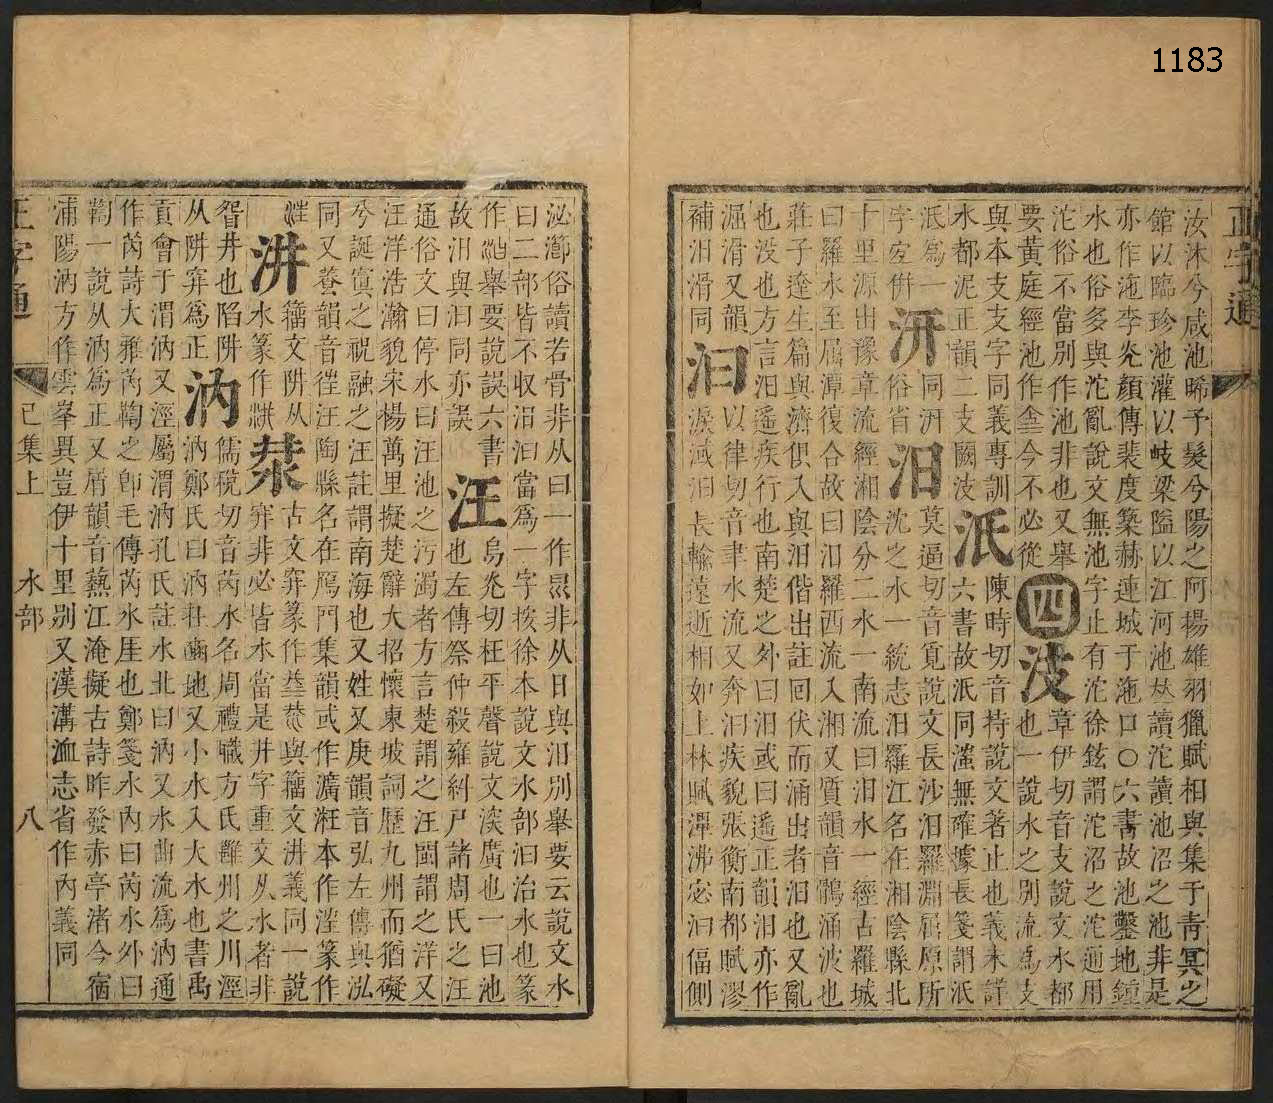 1183
正字通
汝沐兮咸池晞予髮兮陽之阿揚雄羽獵賦相與集于靑冥之
館以臨珍池灌以岐梁隘以江河池𠀤讀沱讀池沼之池非是
亦作沲李尤顏傳裴度築赫連城于沲口〇六書故池鑿地鍾
水也俗多與沱亂說文無池字止有沱徐鉉謂沱沼之沱通用
沱俗不當別作池非也又舉
要黃庭經池作 今不必從 四 汥 章伊切音支說文水都
也一說水之別流爲支
與本支支字同義專訓
水都泥正韻二支闕汥 汦 陳時切音持說文著止也義未詳
六書故汦同滍無確據長箋謂汦
泜爲一
字空倂 汧 同汧
俗省 汨 莫逼切音覓說文長沙汨羅淵屈原所
沈之水一統志汨羅江名在湘陰縣北
十里源出豫章流經湘陰分二水一南流曰汨水一經古羅城
曰羅水至屈潭復合故曰汨羅西流入湘又質韻音鶻涌波也
莊子達生篇與濟俱入與汨偕出註回伏而涌出者汨也又亂
也沒也方言汨遙疾行也南楚之外曰汨或曰遙正韻汨亦作
淈滑又韻
補汨滑同 汩 以律切音聿水流又奔汩疾貌張衡南都賦漻
淚淢汩長輸遠逝相如上林賦滭沸宓汩偪側
泌瀄俗讀若骨非从曰一作𣊡非从日與汨別舉要云說文水
曰二部皆不收汨汩當爲一字按徐本說文水部汩治水也篆
作 舉要說誤六書
故汨與汩同亦誤 汪 烏光切枉平聲說文深廣也一曰池
也左傳祭仲殺雍糾尸諸周氏之汪
通俗文曰停水曰汪池之污濁者方言楚謂之汪閩謂之洋又
汪洋浩瀚貌宋楊萬里擬楚辭大招懷東坡詞歷九州而猶礙
兮誕寘之祝融之汪註謂南海也又姓又庚韻音弘左傳與泓
同又養韻音徍汪陶縣名在鴈門集韻或作瀇𣶈本作㴏篆作
 汫 籒文阱从
水篆作 𣴎 古文穽篆作 與籒文汫義同一說
穽非必皆水當是井字重文从水者非
眢井也陷阱
从阱穽爲正 汭 儒稅切音芮水名周禮職方氏雝州之川涇
汭鄭氏曰汭在豳地又小水入大水也書禹
貢會于渭汭又涇屬渭汭孔氏註水北曰汭又水曲流爲汭通
作芮詩大雅芮鞫之卽毛傳芮水厓也鄭箋水內曰芮水外曰
鞫一說从汭爲正又屑韻音爇江淹擬古詩昨發赤亭渚今宿
浦陽汭方作雲峯異豈伊十里別又漢溝洫志省作內義同
正字通 巳集上 水部 八